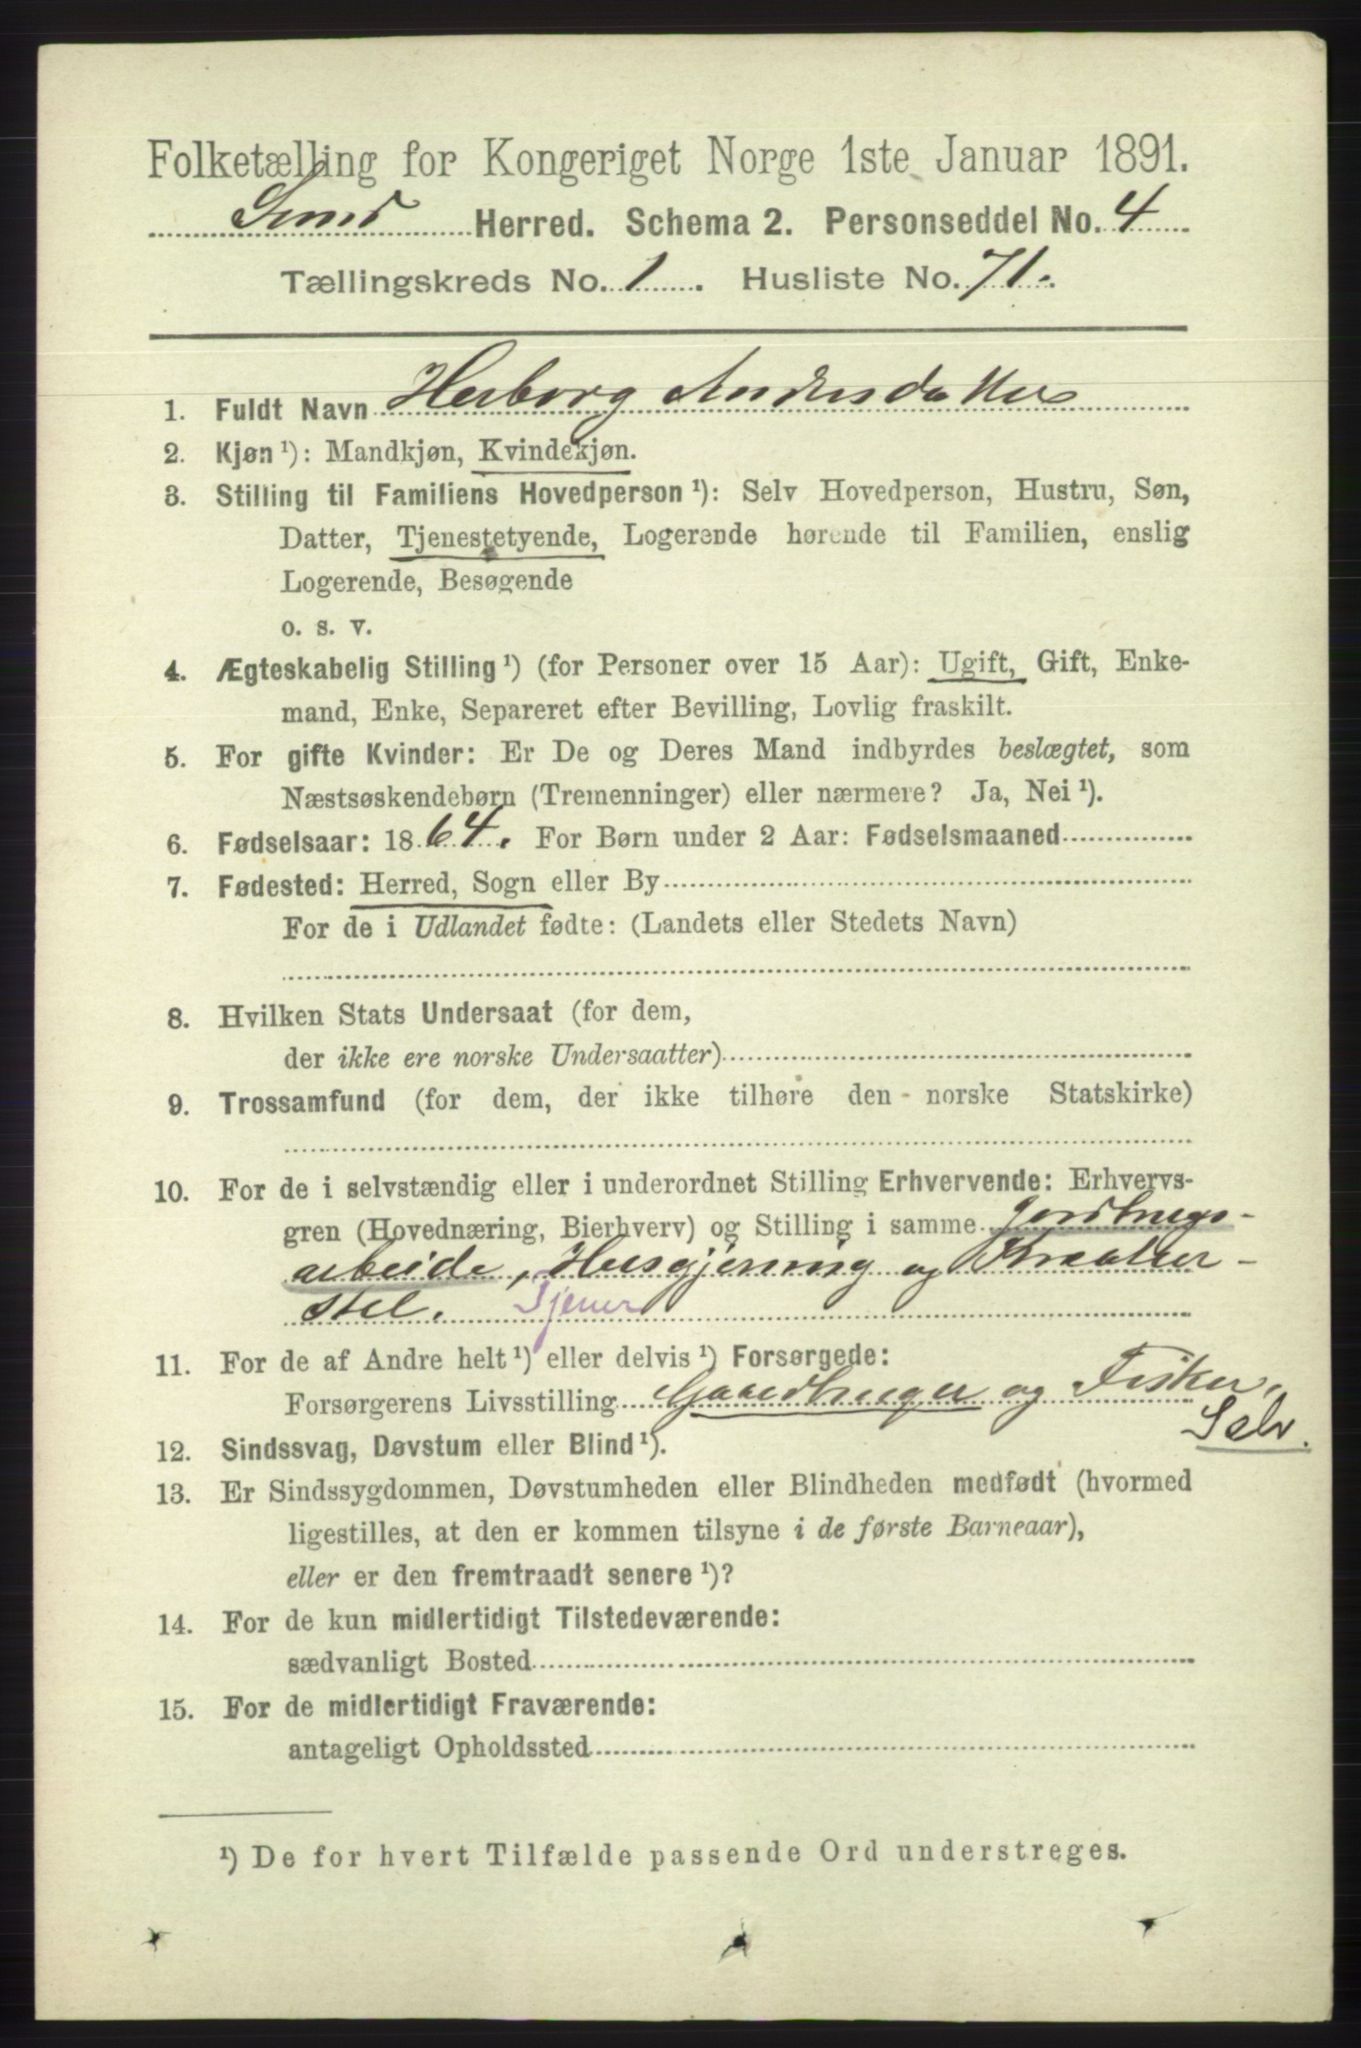 Folketælling for Kongeriget Norge 1ste Januar 1891.
Sund Herred. Schema 2. Personseddel No. 4
Tællingskreds No. 1. Husliste No. 71.
1. Fuldt Navn Herborg Andersdatter
2. Kjøn¹): Mandkjøn, Kvindekjøn.
3. Stilling til Familiens Hovedperson¹): Selv Hovedperson, Hustru, Søn,
Datter, Tjenestetyende, Logerende hørende til Familien, enslig
Logerende, Besøgende
o. s. v.
4. Ægteskabelig Stilling¹) (for Personer over 15 Aar): Ugift, Gift, Enke-
mand, Enke, Separeret efter Bevilling, Lovlig fraskilt.
5. For gifte Kvinder: Er De og Deres Mand indbyrdes beslægtet, som
Næstsøskendebørn (Tremenninger) eller nærmere? Ja, Nei¹).
6. Fødselsaar: 1864. For Børn under 2 Aar: Fødselsmaaned
7. Fødested: Herred, Sogn eller By
For de i Udlandet fødte: (Landets eller Stedets Navn)
8. Hvilken Stats Undersaat (for dem,
der ikke ere norske Undersaatter)
9. Trossamfund (for dem, der ikke tilhøre den norske Statskirke)
10. For de i selvstændig eller i underordnet Stilling Erhvervende: Erhvervs-
gren (Hovednæring, Bierhverv) og Stilling i samme Jordbrugs-
arbeide, Husgjerning og Kreatur-
stel. Tjener
11. For de af Andre helt¹) eller delvis¹) Forsørgede:
Forsørgerens Livsstilling Gaardbruger og Fisker,
Selv.
12. Sindssvag, Døvstum eller Blind¹).
13. Er Sindssygdommen, Døvstumheden eller Blindheden medfødt (hvormed
ligestilles, at den er kommen tilsyne i de første Barneaar),
eller er den fremtraadt senere¹)?
14. For de kun midlertidigt Tilstedeværende:
sædvanligt Bosted
15. For de midlertidigt Fraværende:
antageligt Opholdssted
¹) De for hvert Tilfælde passende Ord understreges.